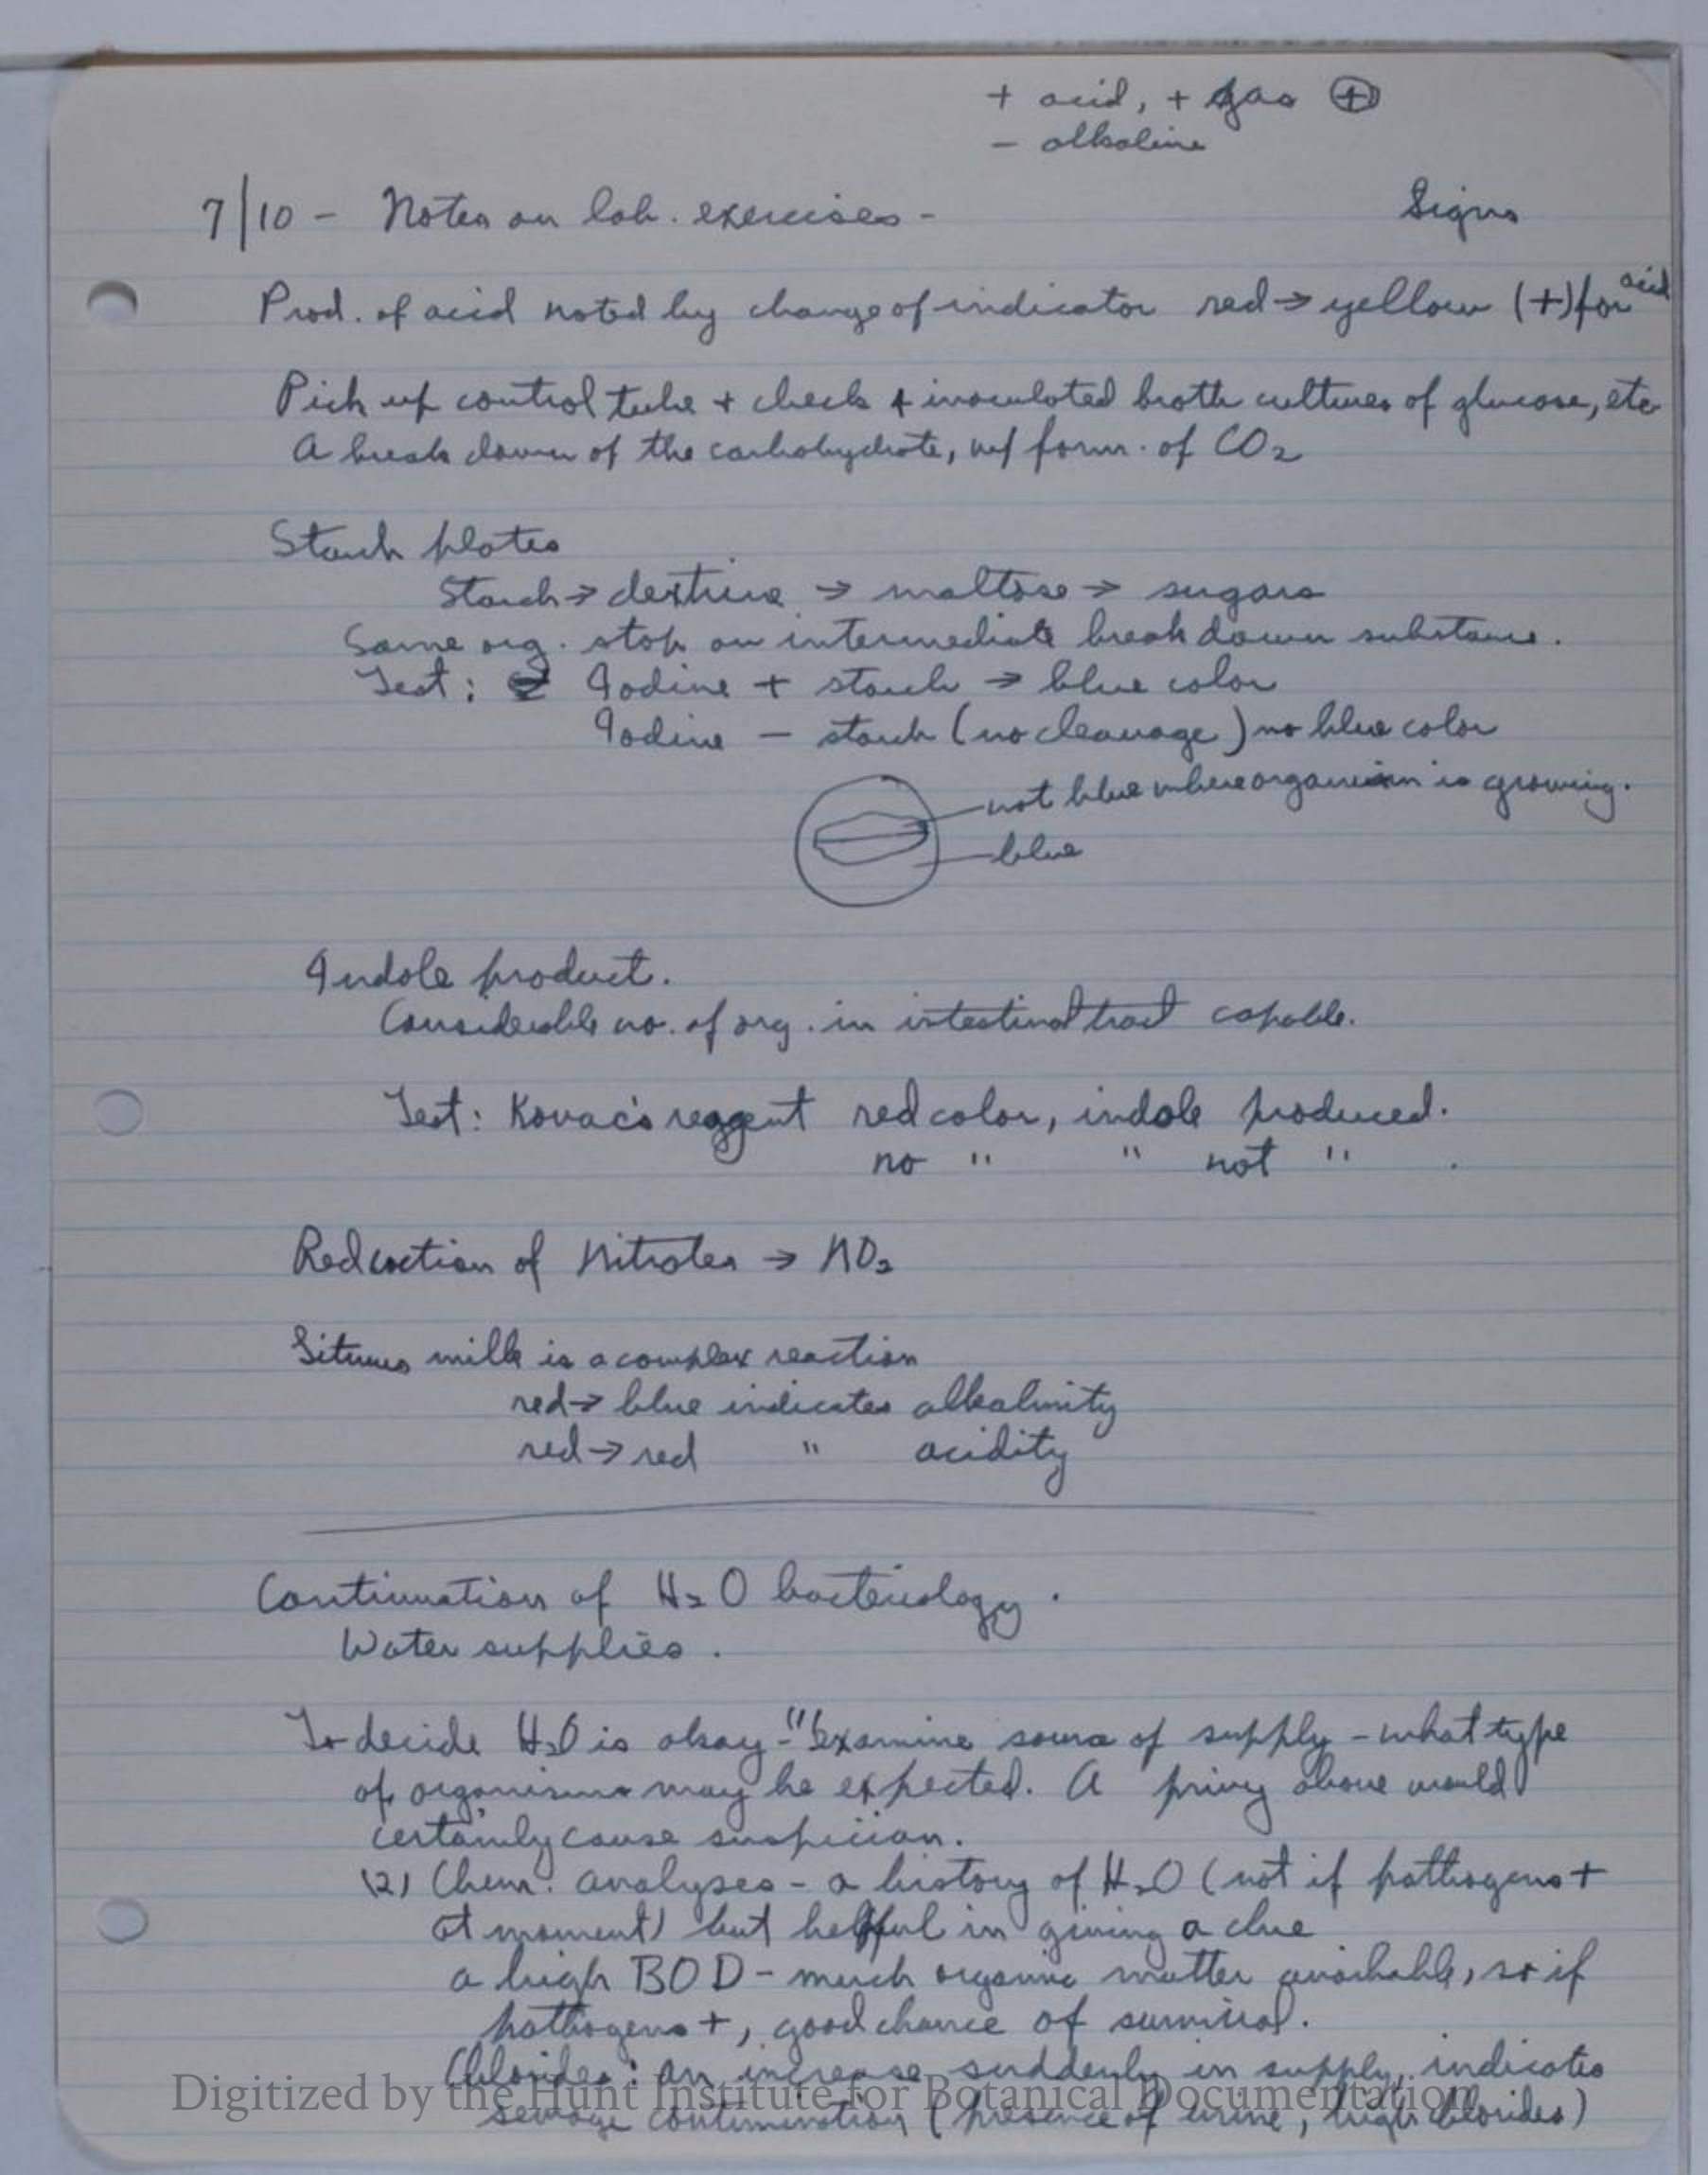 + acid, + gas ⊕
- alkaline
7/10 - Notes on lab. exercises - Signs
Prod. of acid noted by change of indicator red → yellow (+) for acid
Pick up control tube + check 4 inoculated broth cultures of glucose, etc
A break down of the carbohydrate, w/ form. of CO2
Starch plates
Starch → dextrine → maltose → sugars
Some org. stop on intermediate break down substance.
Test: Iodine + starch → blue color
Iodine - starch (no cleavage) no blue color
not blue where organism is growing.
blue
Indole product.
Considerable no. of org. in intestinal tract capable.
Test: Kovac's reagent red color, indole produced.
no " " not " .
Reduction of Nitrates → NO2
Litmus milk is a complex reaction
red → blue indicates alkalinity
red → red " acidity
Continuation of H2O bacteriology.
Water supplies.
To decide H2O is okay - (1) Examine source of supply - what type
of organisms may be expected. A privy above would
certainly cause suspicion.
(2) Chem. analyses - a history of H2O (not if pathogens +
at moment) but helpful in giving a clue
a high BOD - much organic matter available, so if
pathogens +, good chance of survival.
Chlorides: an increase suddenly in supply, indicates
sewage contimination (presence of urine, high chlorides)
Digitized by the Hunt Institute for Botanical Documentation